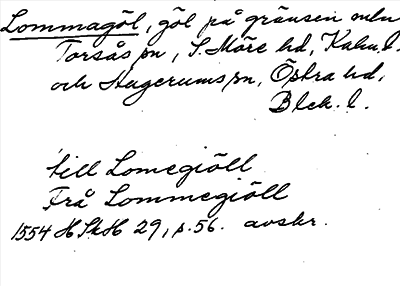 Lommagöl, göl på gränsen mln
Torsås sn, S. Möre hd, Kalm. l.
och Augerums sn, Östra hd,
Blek. l.
till Lomegiöll
Frå Lommegiöll
1554 HSkH 29, s. 56. avskr.